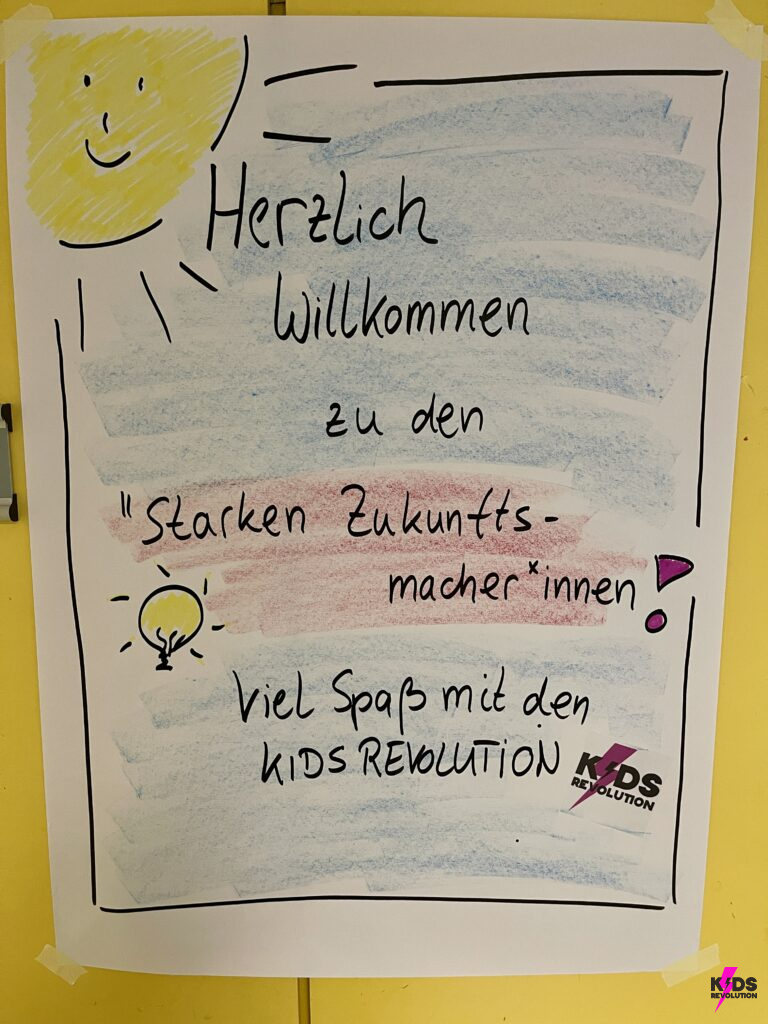 Herzlich
Willkommen
zu den
"Starken Zukunfts-
macher*innen!
Viel Spaß mit den
KIDS REVOLUTION
KIDS
REVOLUTION
KIDS
REVOLUTION